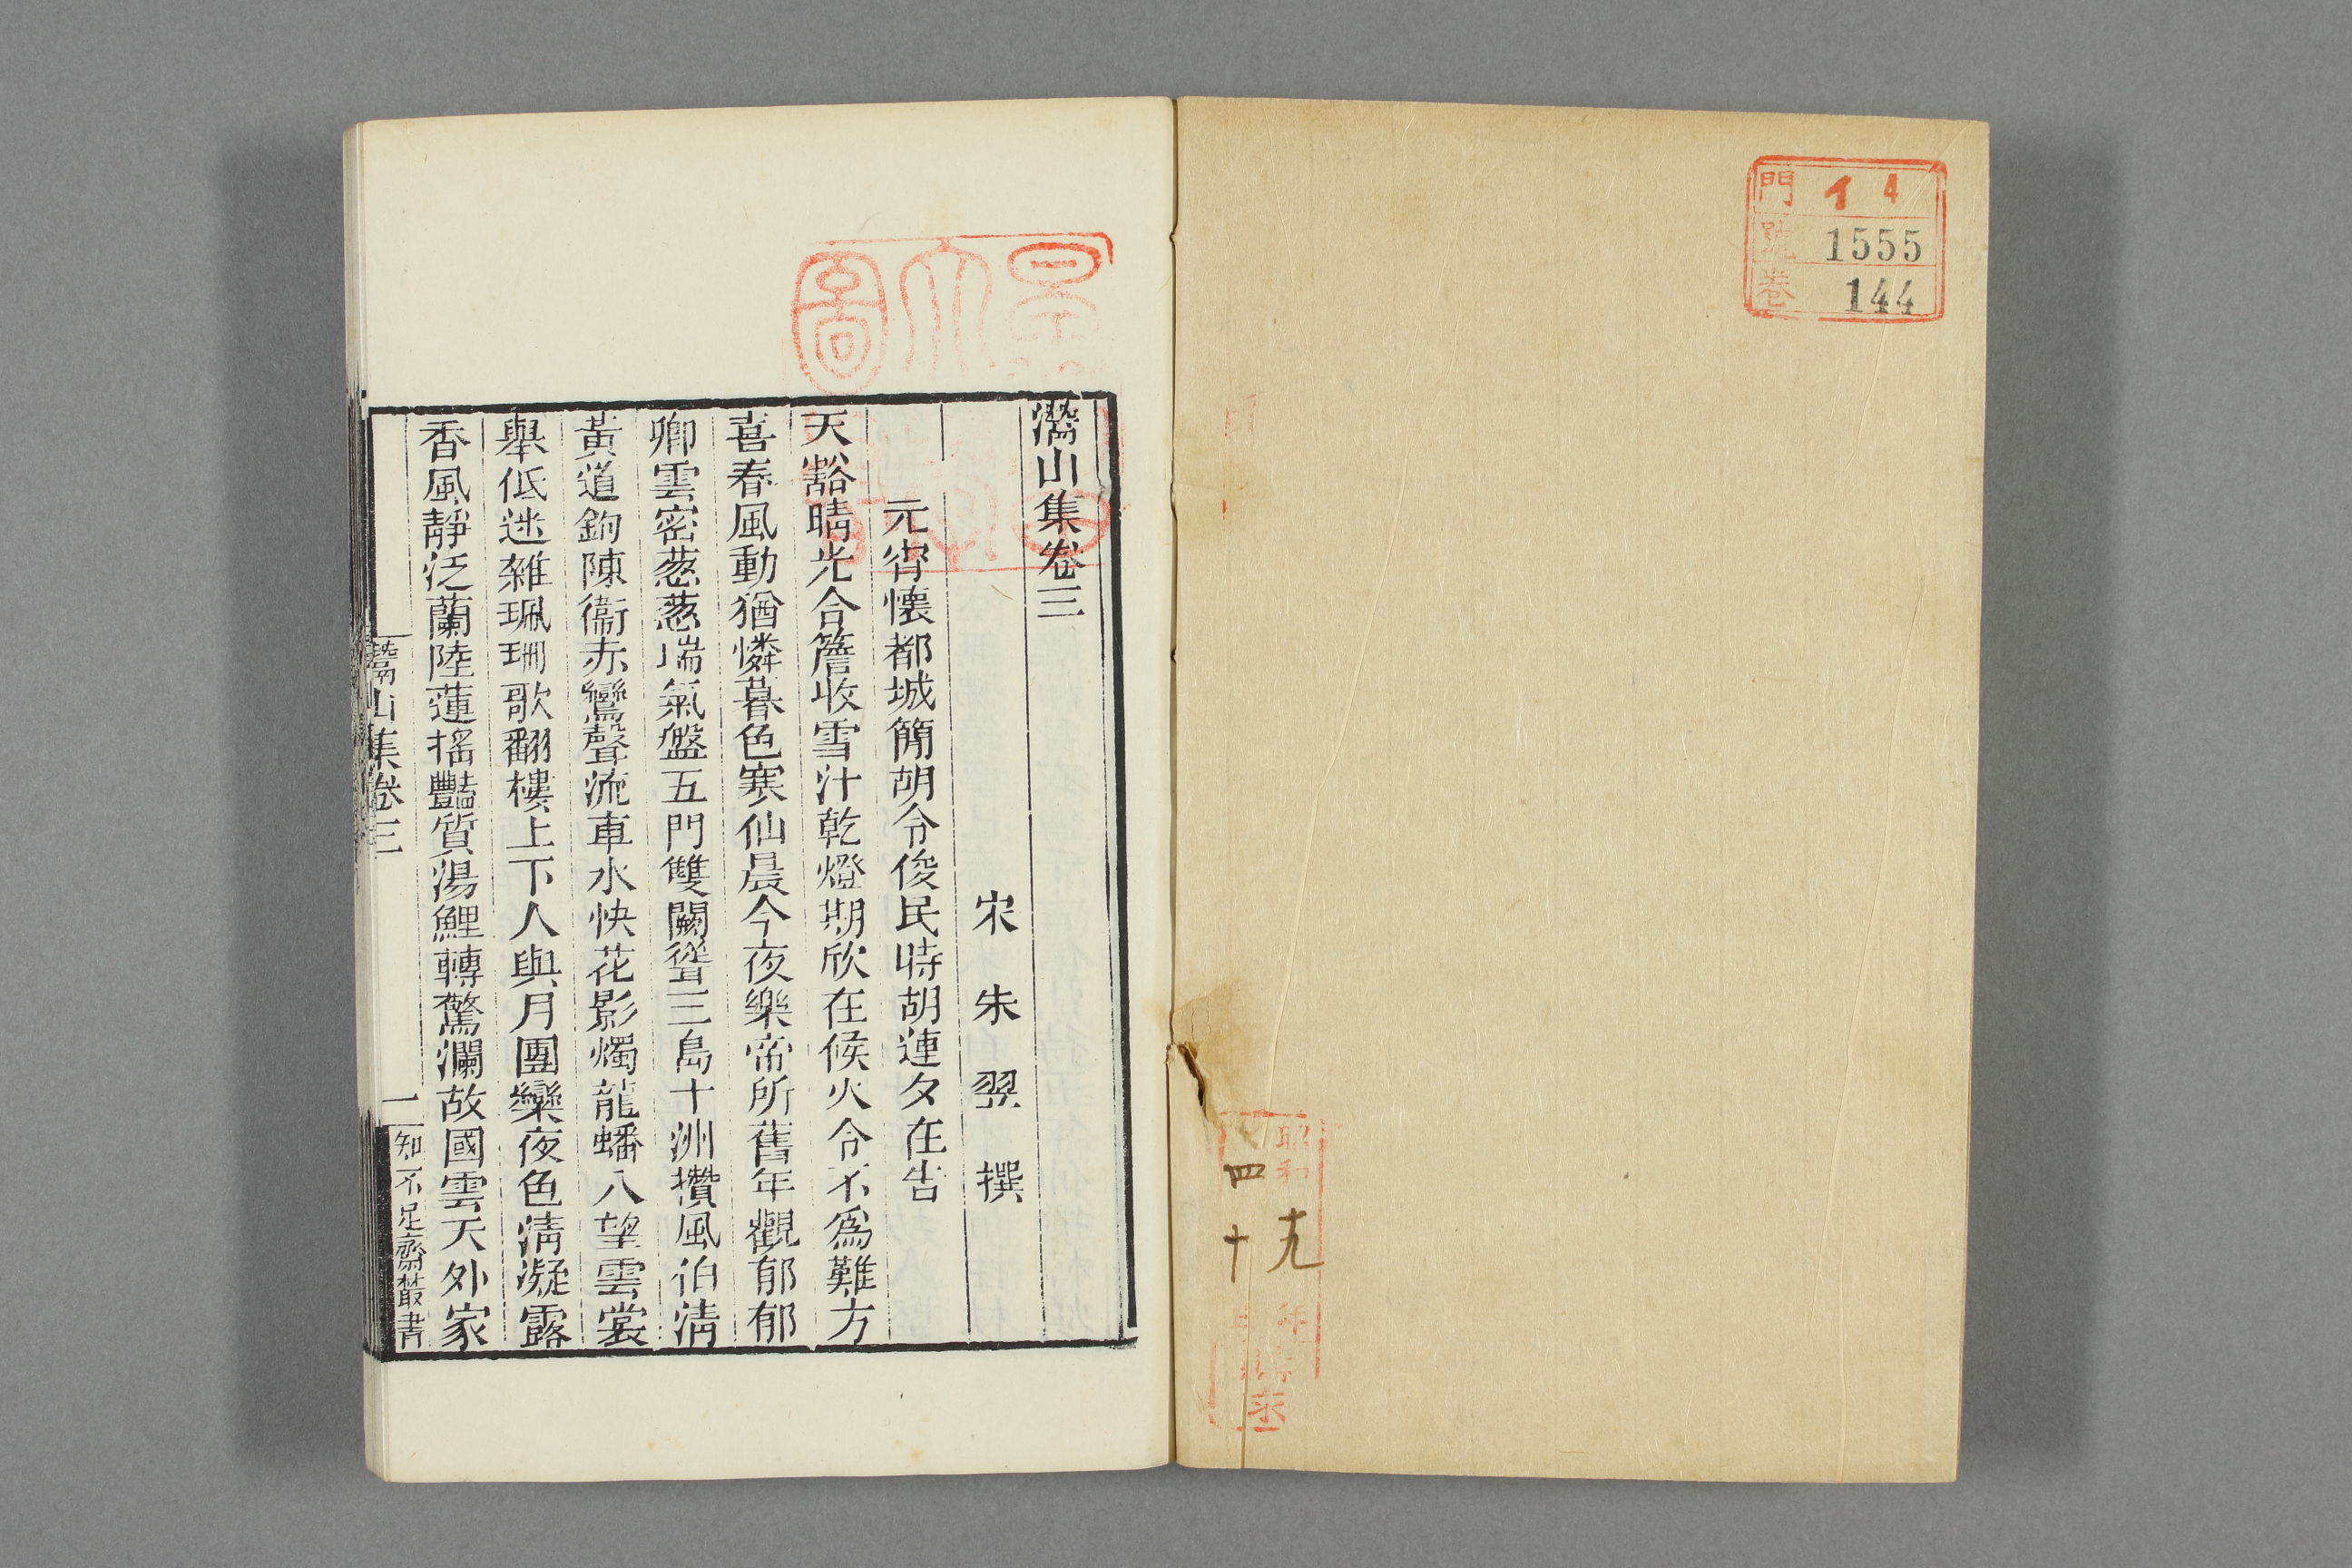 門 イ4
號 1555
卷 144
昭和
十九
年
四
十
求
灊山集卷三
宋朱翌撰
元宵懷都城簡胡令俊民時胡連夕在告
天豁晴光合簷收雪汁乾燈期欣在候火令不爲難方
喜春風動猶憐暮色寒仙晨今夜樂帝所舊年觀郁郁
卿雲密葱葱瑞氣盤五門雙闕聳三島十洲攢風伯淸
黃道鉤陳衞赤鸞聲流車水快花影燭龍蟠八望雲裳
舉低迷雜珮珊歌翻樓上下人與月團欒夜色淸凝露
香風靜泛蘭陸蓮搖豔質湯鯉轉驚瀾故國雲天外家
灊山集卷三
一
知不足齋叢書